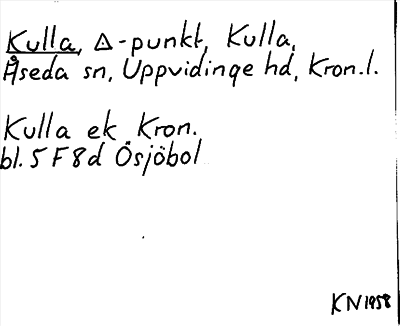 Kulla, Δ-punkt, Kulla,
Åseda sn, Uppvidinge hd, Kron.l.
Kulla ek. Kron.
bl. 5 F 8 d Ösjöbol
KN 1958